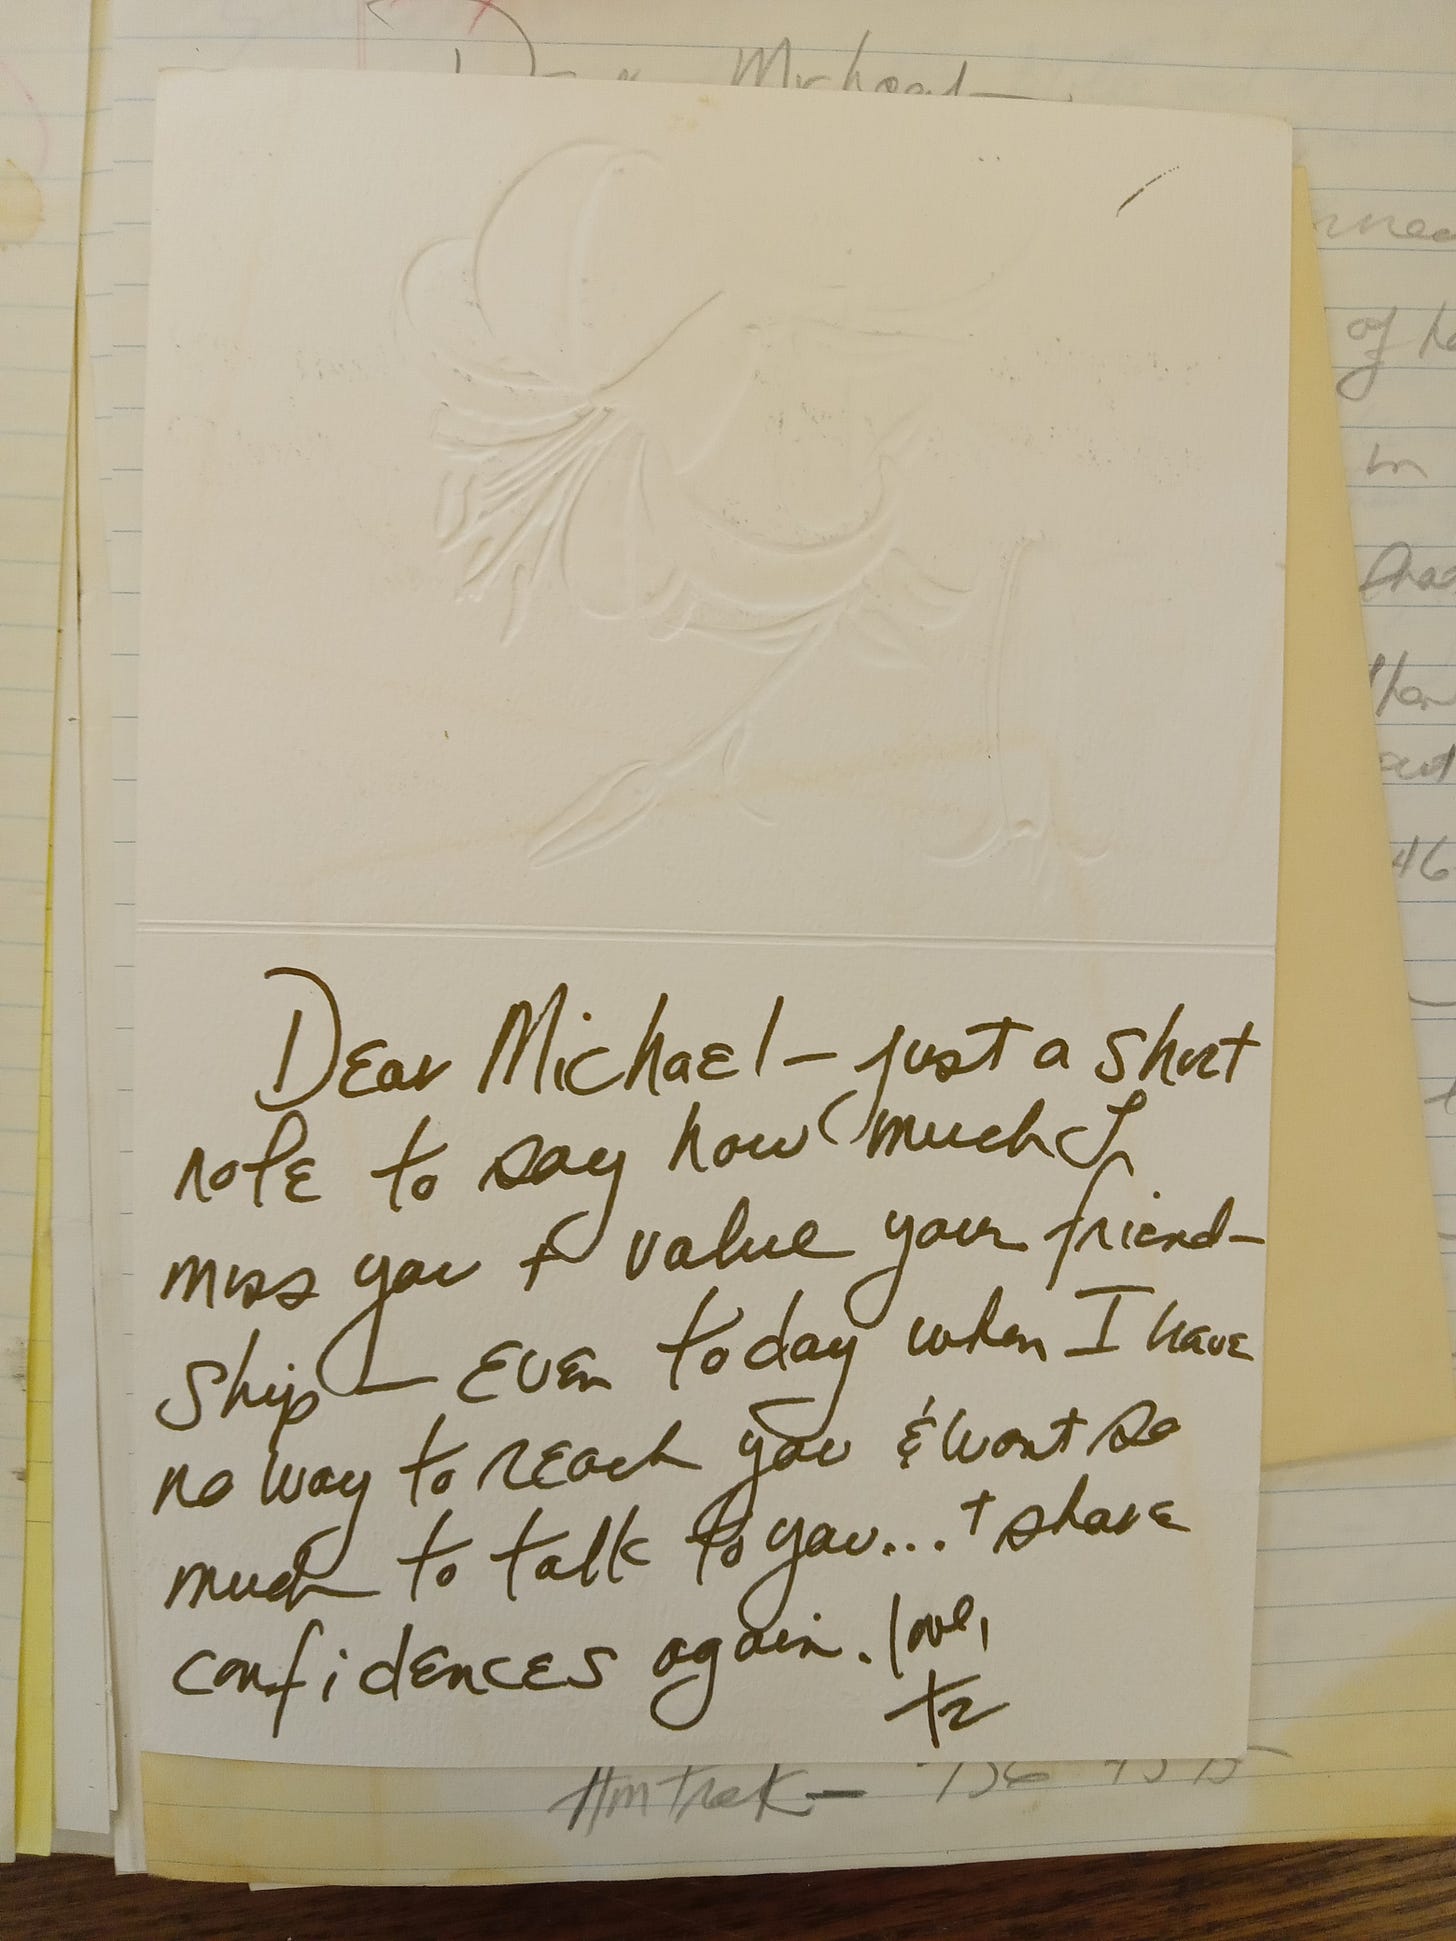 Michael
of
in
Dear Michael – just a short
note to say how much I
miss you + value your friend-
ship — even today when I have
no way to reach you & want so
much to talk to you... + share
confidences again. love,
Amtrak —